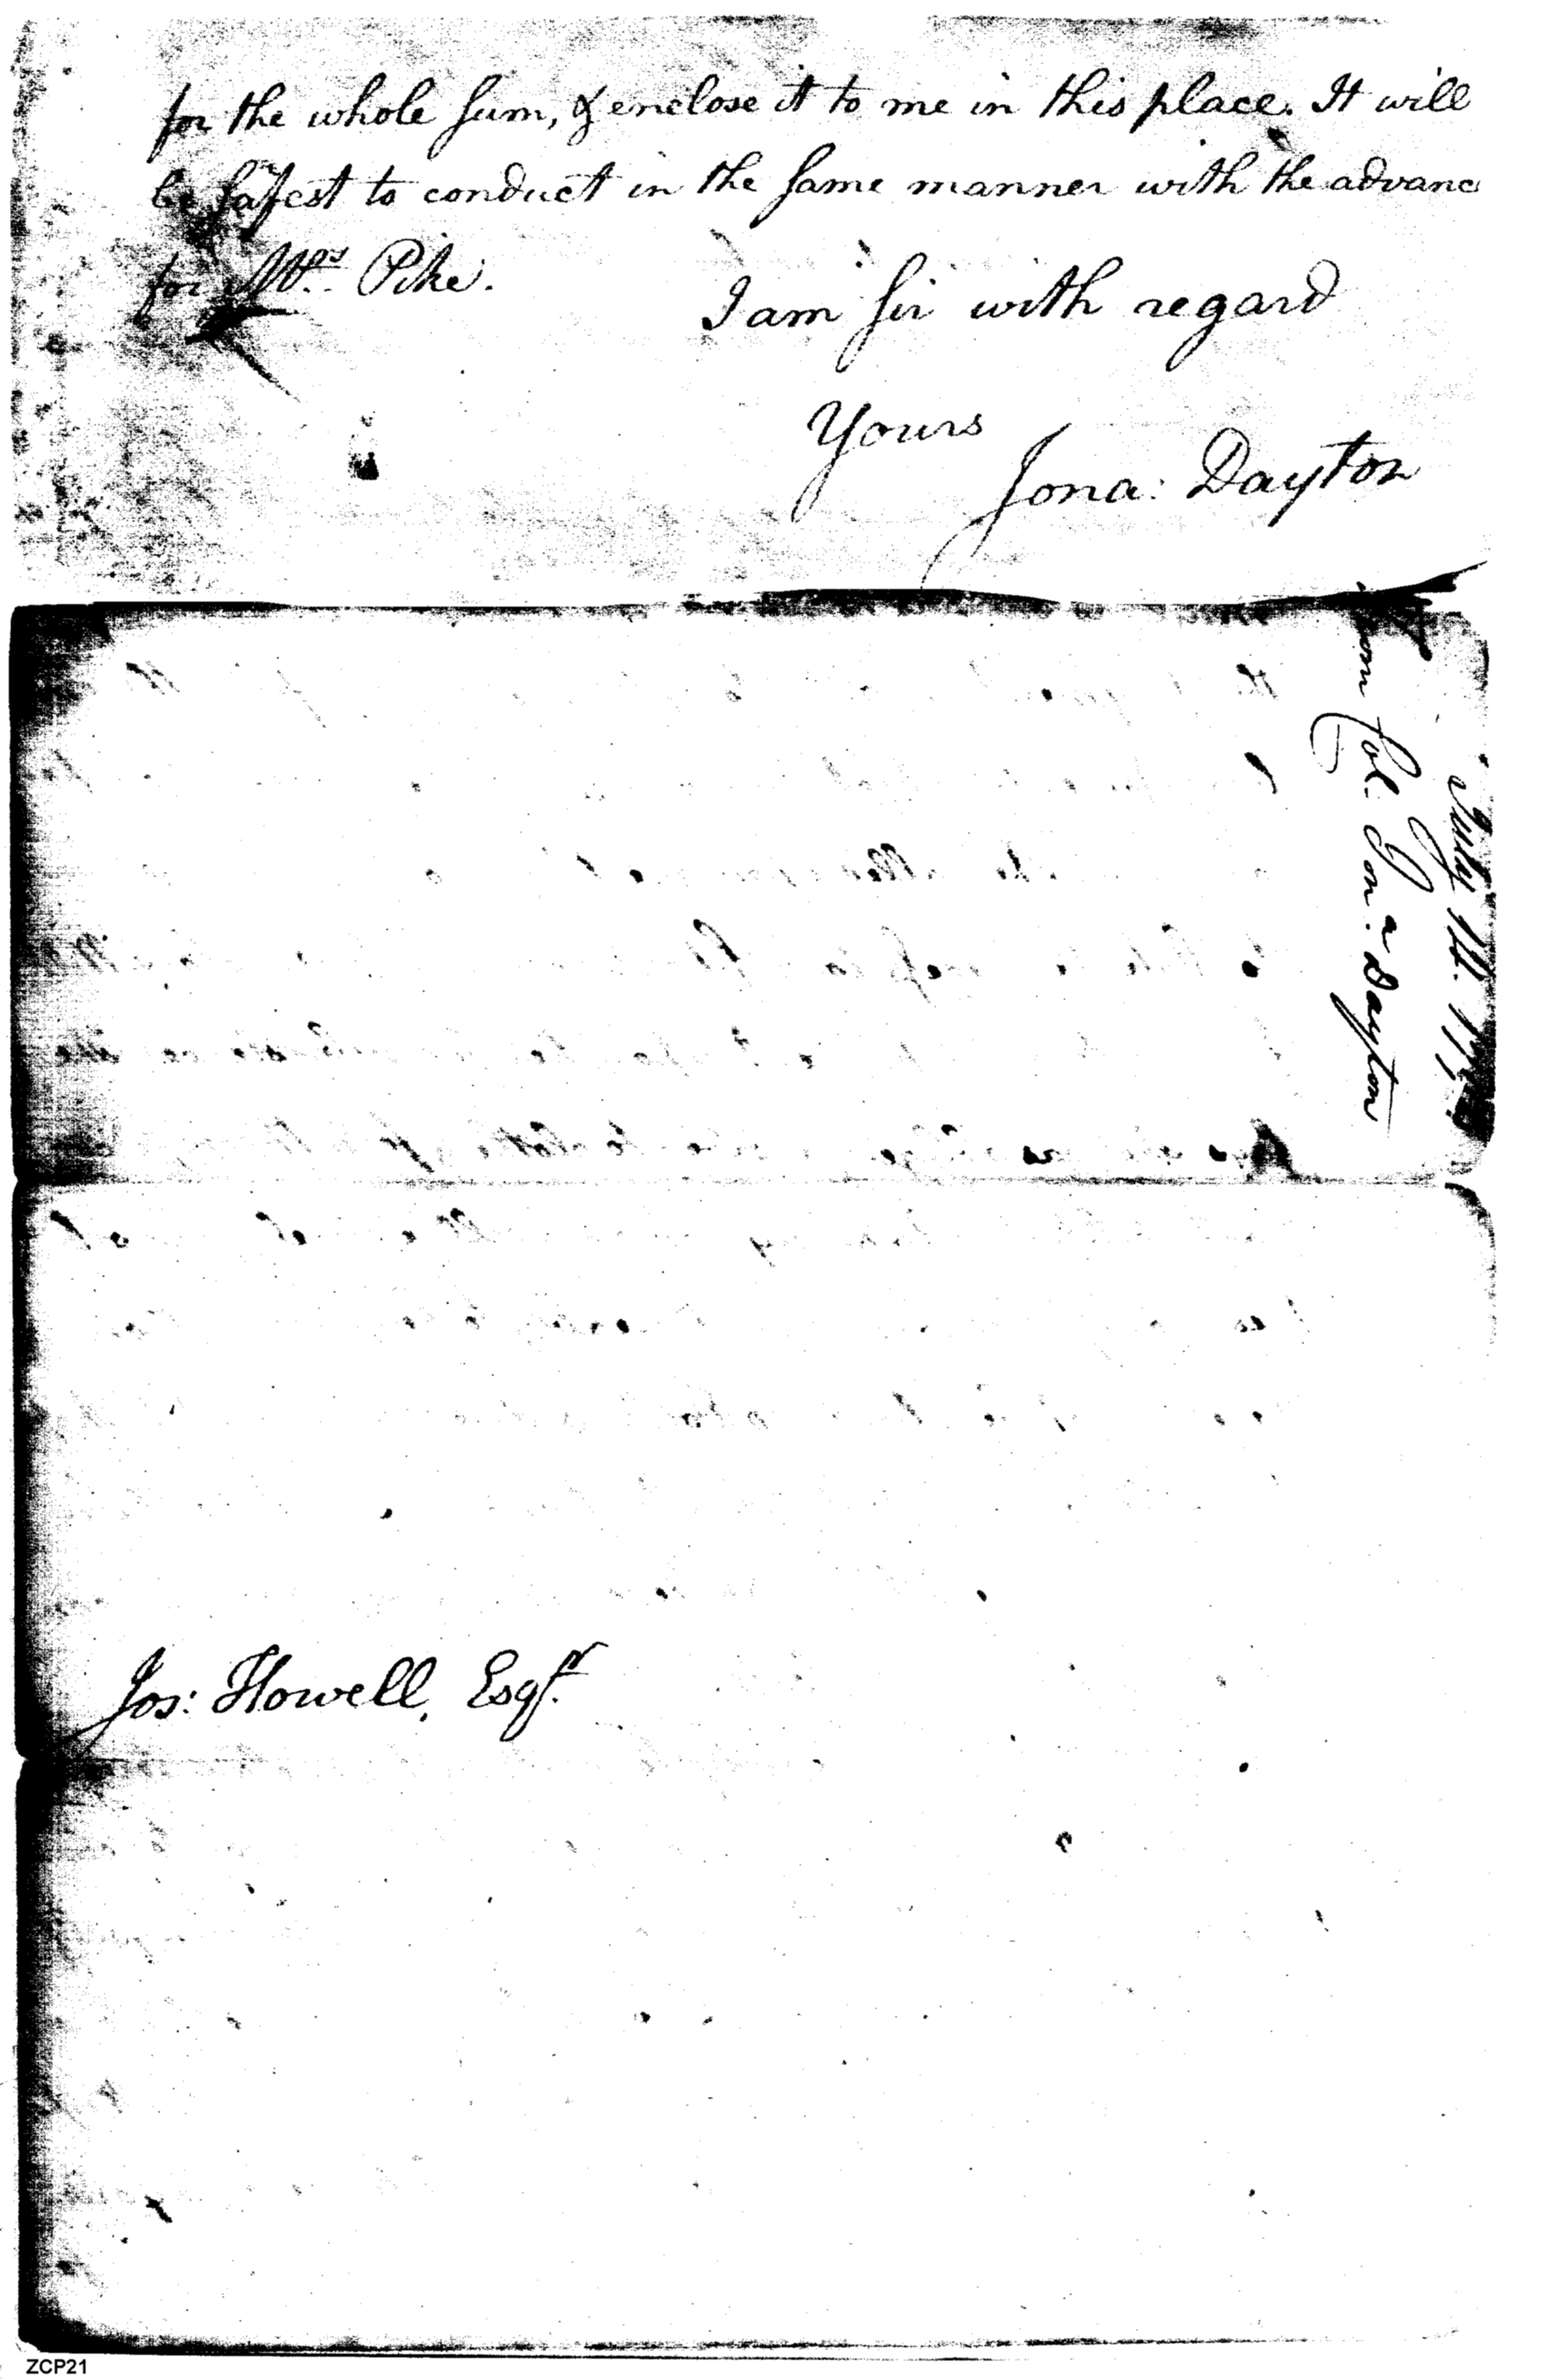 for the whole sum, & enclose it to me in this place. It will
be safest to conduct in the same manner with the advanc
for Mrs. Pike.
I am sir with regard
Yours
Jona: Dayton
from Col. Jona. Dayton
July
Jos: Howell, Esqr.
ZCP21